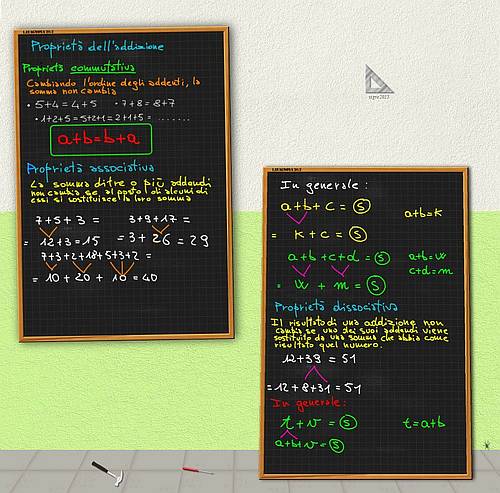 Proprietà dell'addizione
Proprietà commutativa
Cambiando l'ordine degli addendi, la
somma non cambia
• 5+4 = 4+5 • 7+8 = 8+7
• 1+2+5 = 5+2+1 = 2+1+5 = .......
a+b=b+a
Proprietà associativa
La somma di tre o più addendi
non cambia se al posto di alcuni di
essi si sostituisce la loro somma
7+5+3 = 3+9+17 =
= 12+3=15 = 3+26 = 29
7+3+2+18+5+3+2 =
= 10 + 20 + 10 = 40
In generale:
a+b+c = S a+b=k
= k+c = S
a+b+c+d = S a+b=w
c+d=m
= w + m = S
Proprietà dissociativa
Il risultato di una addizione non
cambia se uno dei suoi addendi viene
sostituito da una somma che abbia come
risultato quel numero.
12+39 = 51
=12+8+31=51
In generale:
t+v = S t=a+b
a+b+v = S